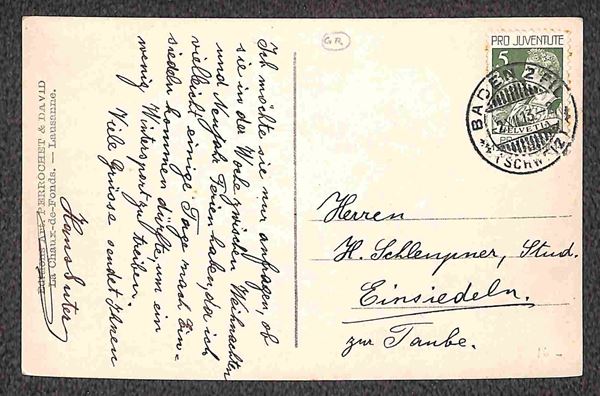 Ich möchte sie nur anfragen, ob
sie in der Woche zwischen Weihnachten
und Neujahr Ferien haben, da ich
vielleicht einige Tage nach Ein-
siedeln kommen dürfte, um ein
wenig Wintersport zu treiben.
Viele Grüsse sendet Ihnen
Hans Suter
Editions Art. PERROCHET & DAVID
La Chaux-de-Fonds. — Lausanne.
G.R.
PRO JUVENTUTE
5
HELVETIA
BADEN
(SCHWEIZ)
Herren
H. Schleupner, Stud.
Einsiedeln.
zur Taube.